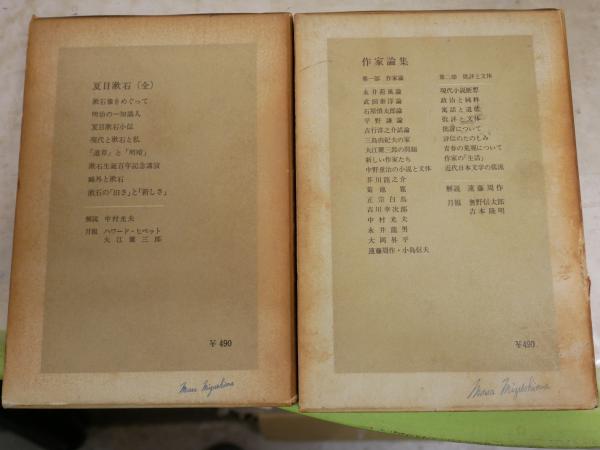 夏目漱石（全）
漱石像をめぐって
明治の一知識人
夏目漱石小伝
現代と漱石と私
「道草」と「明暗」
漱石生誕百年記念講演
鷗外と漱石
漱石の「旧さ」と「新しさ」
解説 中村光夫
月報 ハワード・ヒベット
大江健三郎
￥490
作家論集
第一部 作家論
永井荷風論
武田泰淳論
石原慎太郎論
平野謙論
吉行淳之介試論
三島由紀夫の家
大江健三郎の問題
新しい作家たち
中野重治の小説と文体
芥川龍之介
菊池寛
正宗白鳥
吉川幸次郎
中村光夫
永井龍男
大岡昇平
遠藤周作・小島信夫
第二部 批評と文体
現代小説断想
政治と純粋
寓話と道徳
批評と文体
批評について
評伝のたのしみ
青春の荒廃について
作家の「生活」
近代日本文学の底流
解説 遠藤周作
月報 奥野信太郎
吉本隆明
￥490
Masao Miyoshi